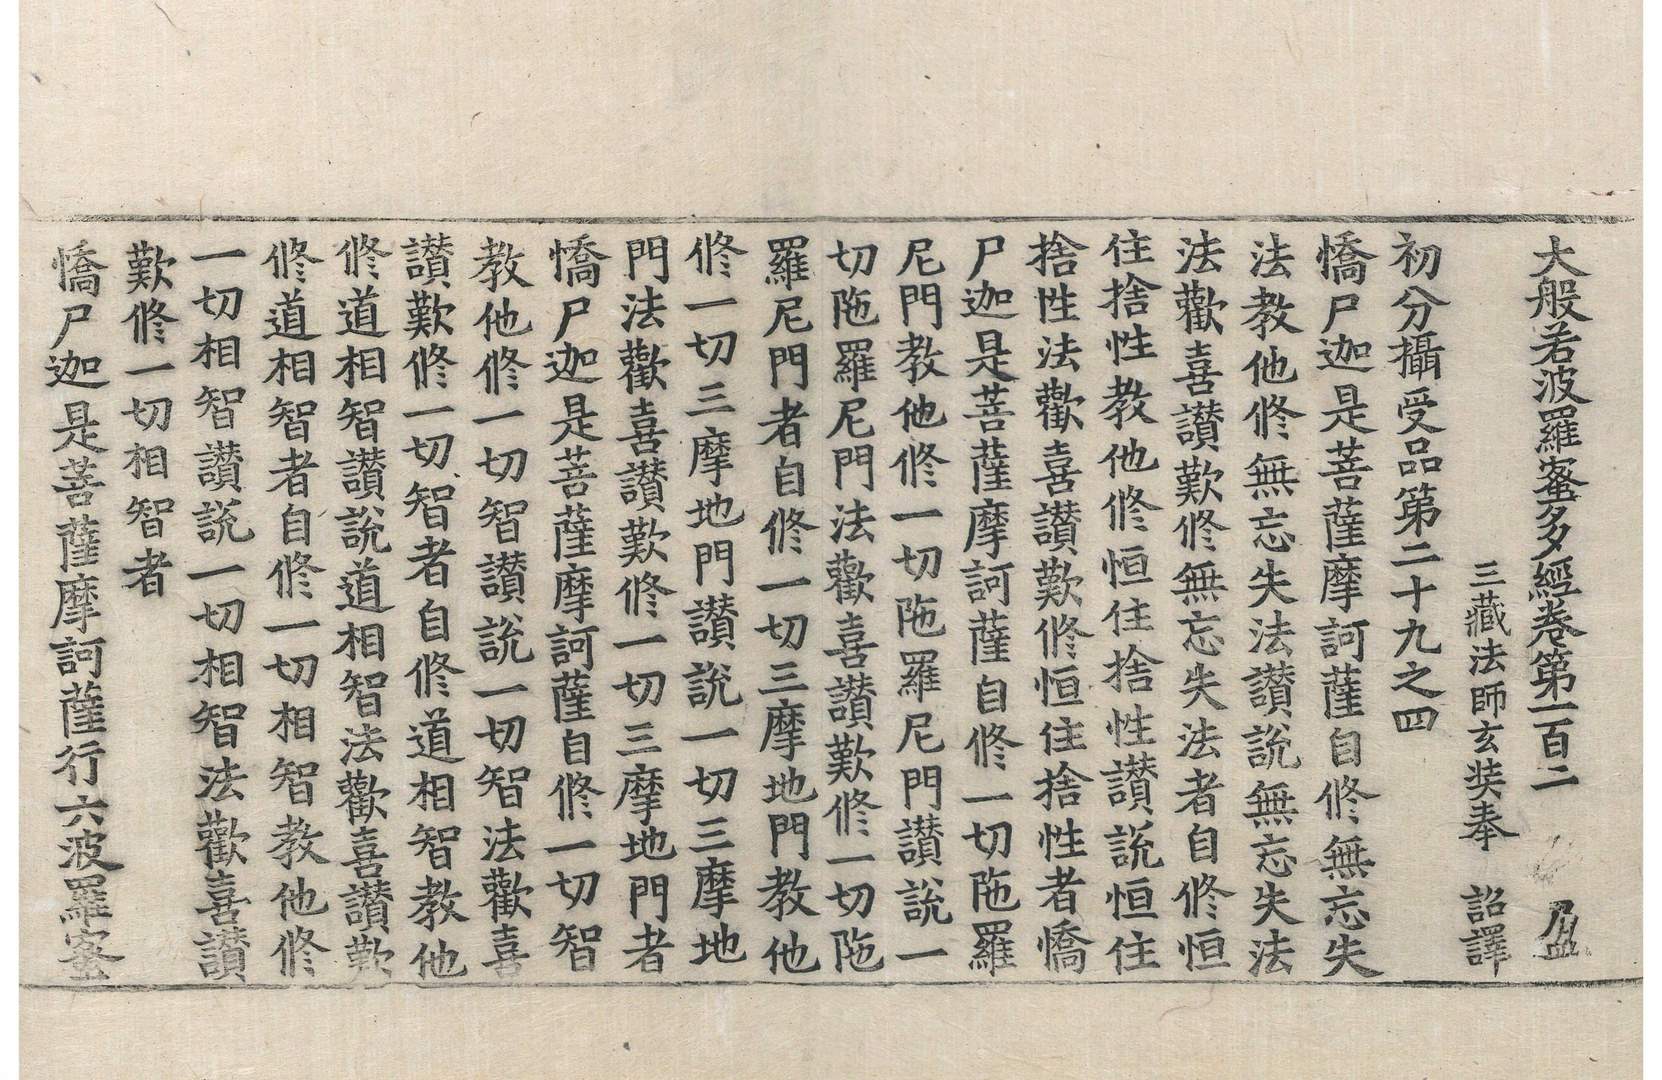 大般若波羅蜜多經卷第一百二 盈
三藏法師玄奘奉 詔譯
初分攝受品第二十九之四
憍尸迦是菩薩摩訶薩自修無忘失
法教他修無忘失法讃說無忘失法
法歡喜讃歎修無忘失法者自修恒
住捨性教他修恒住捨性讃說恒住
捨性法歡喜讃歎修恒住捨性者憍
尸迦是菩薩摩訶薩自修一切陁羅
尼門教他修一切陁羅尼門讃說一
切陁羅尼門法歡喜讃歎修一切陁
羅尼門者自修一切三摩地門教他
修一切三摩地門讃說一切三摩地
門法歡喜讃歎修一切三摩地門者
憍尸迦是菩薩摩訶薩自修一切智
教他修一切智讃說一切智法歡喜
讃歎修一切智者自修道相智教他
修道相智讃說道相智法歡喜讃歎
修道相智者自修一切相智教他修
一切相智讃說一切相智法歡喜讃
歎修一切相智者
憍尸迦是菩薩摩訶薩行六波羅蜜